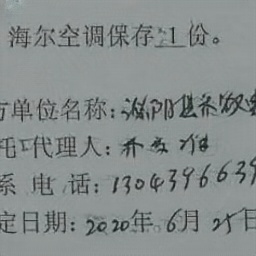 海尔空调保存 1 份。
方单位名称:濮阳县
托代理人:乔
系 电 话:1304396639
定日期:2020年 6月 25日